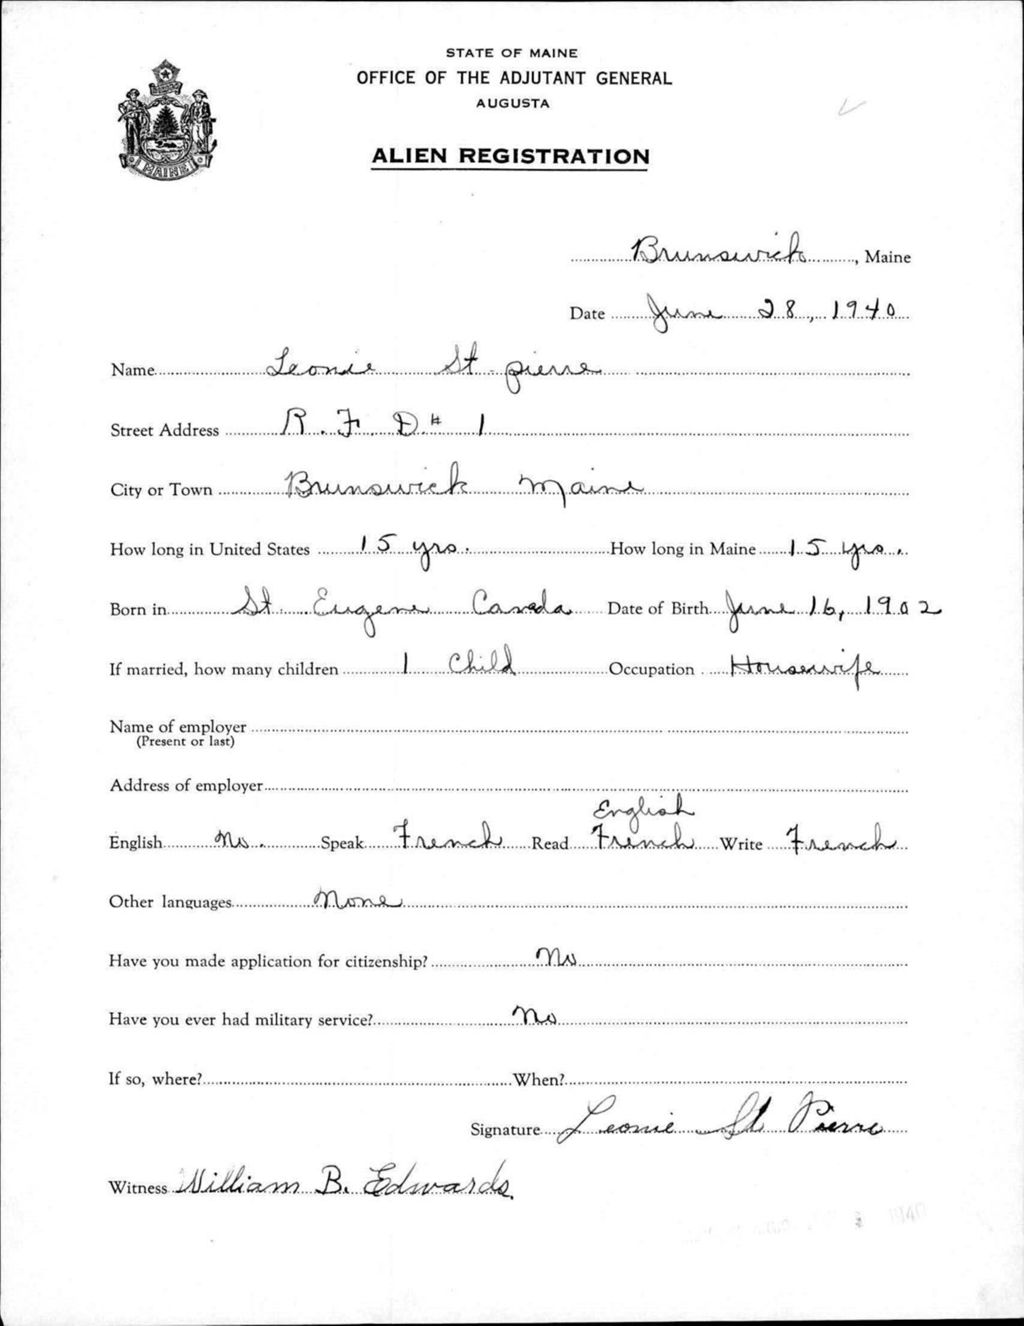 STATE OF MAINE
OFFICE OF THE ADJUTANT GENERAL
AUGUSTA
ALIEN REGISTRATION
MAINE
Brunswick, Maine
Date June 28, 1940
Name Leonie St. pierre
Street Address R. F. D # 1
City or Town Brunswick Maine
How long in United States 15 yrs. How long in Maine 15 yrs.
Born in St. Eugene Canada Date of Birth June 16, 1902
If married, how many children 1 Child Occupation Housewife
Name of employer
(Present or last)
Address of employer
English
English No. Speak French Read French Write French
Other languages None
Have you made application for citizenship? No
Have you ever had military service? No
If so, where? When?
Signature Leonie St Pierre
Witness William B. Edwards.
1940